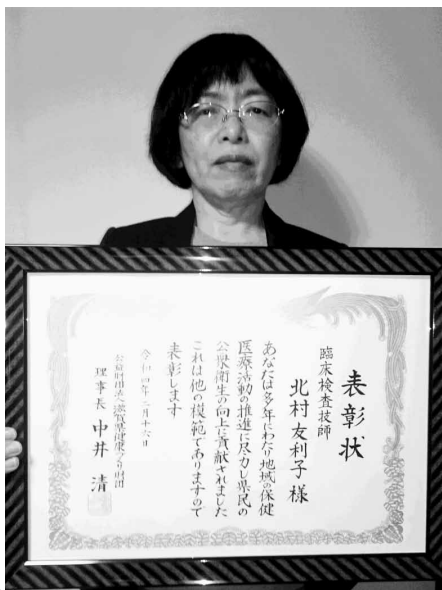 表彰状
臨床検査技師
北村友利子様
あなたは多年にわたり地域の保健
医療活動の推進に尽力し県民の
公衆衛生の向上に貢献されました
これは他の模範でありますので
表彰します
令和四年 月十六日
公益財団法人滋賀県健康づくり財団
理事長 中井 清